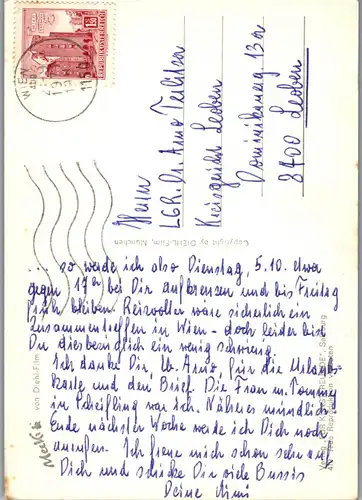 1.50
REPUBLIK ÖSTERREICH
WIEN
Herrn
LGR. Dr. Arno
Kreisgericht Leoben
Dominikanerg 13a
8700 Leoben
Copyright by DIEHL-Film, München
... so werde ich also Dienstag, 5.10. etwa
gegen 17h bei Dir aufkreuzen und bis Freitag
früh bleiben. Reizvoller wäre sicherlich ein
Zusammentreffen in Wien - doch leider bist
Du diesbezüglich ein wenig schwierig.
Ich danke Dir, lb. Arno, für die Urlaubs-
karte und den Brief. Die Frau m. Tommy
in Scheifling war ich. Näheres mündlich.
Ende nächster Woche werde ich Dich noch
anrufen. Ich freue mich schon sehr auf
Dich und schicke Dir viele Bussis
Deine
Mecki
von Diehl-Film